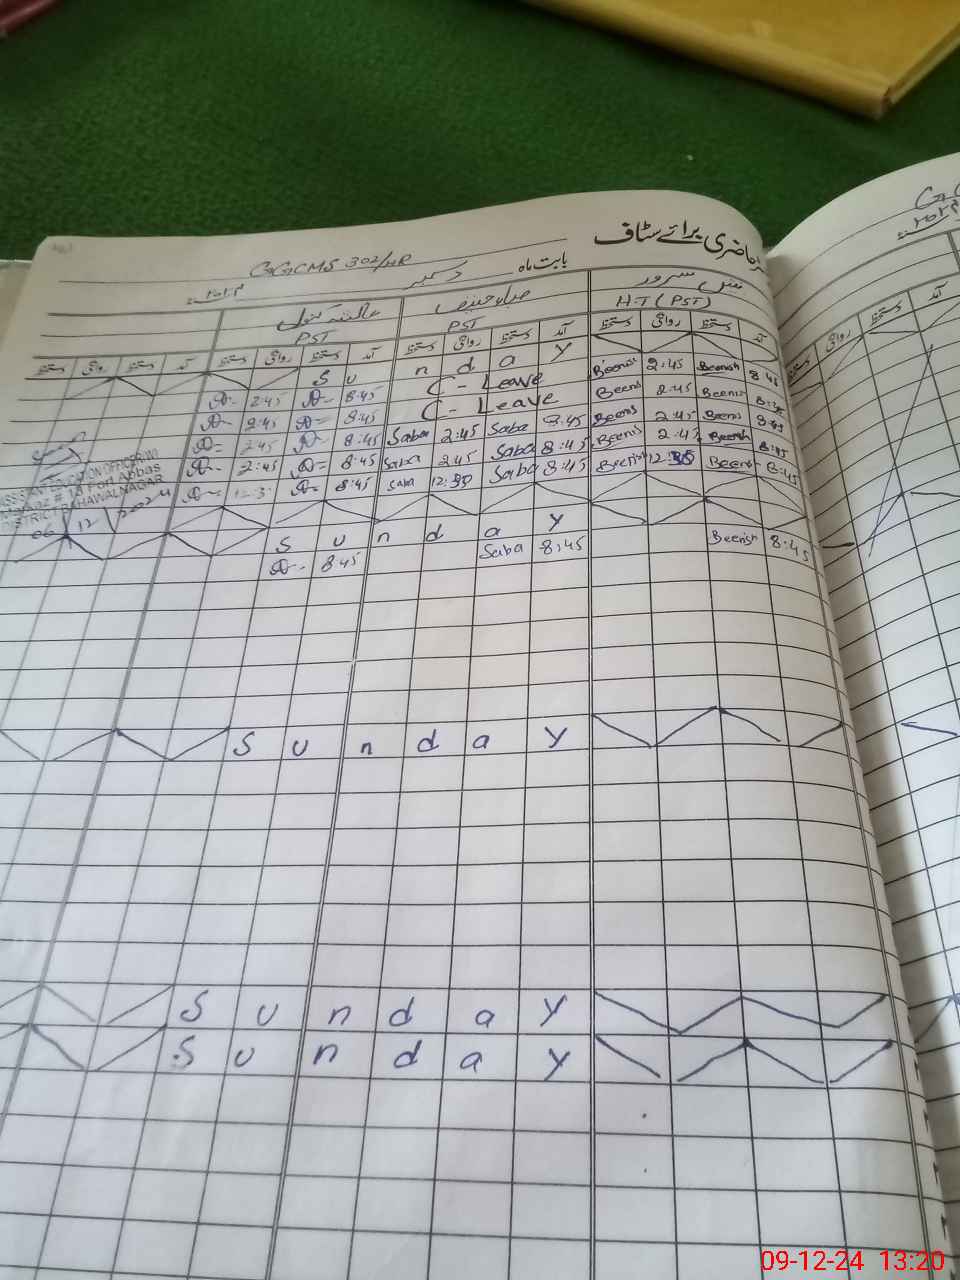 حاضری برائے سٹاف
GGCMS 302/HR
بابت ماہ دسمبر ۲۰۲۴ء
PST PST H.T (PST)
دستخط روانگی دستخط آمد دستخط روانگی دستخط آمد دستخط روانگی دستخط آمد دستخط روانگی دستخط آمد
S u n d a y
2:45 8:45 C-Leave Beenish 2:45 Beenish 8:45
2:45 8:45 C-Leave Beenis 2:45 Beenis 8:45
2:45 8:45 Saba 2:45 Saba 8:45 Beenis 2:45 Beenis 8:45
2:45 8:45 Saba 2:45 Saba 8:45 Beenis 2:45 Beenish 8:45
8:45 Saba 12:30 Saba 8:45 Beenish 12:30 Beenish 8:45
ASSISTANT EDUCATION OFFICER(W)
Fort Abbas
DISTRICT BAHAWALNAGAR
06 12 2024
S u n d a y
8:45 Saba 8:45 Beenish 8:45
S u n d a y
S u n d a y
S u n d a y
09-12-24 13:20